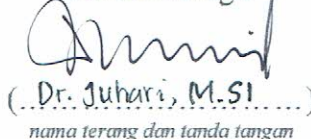 (..Dr. Juhari, M.SI........)
nama terang dan tanda tangan